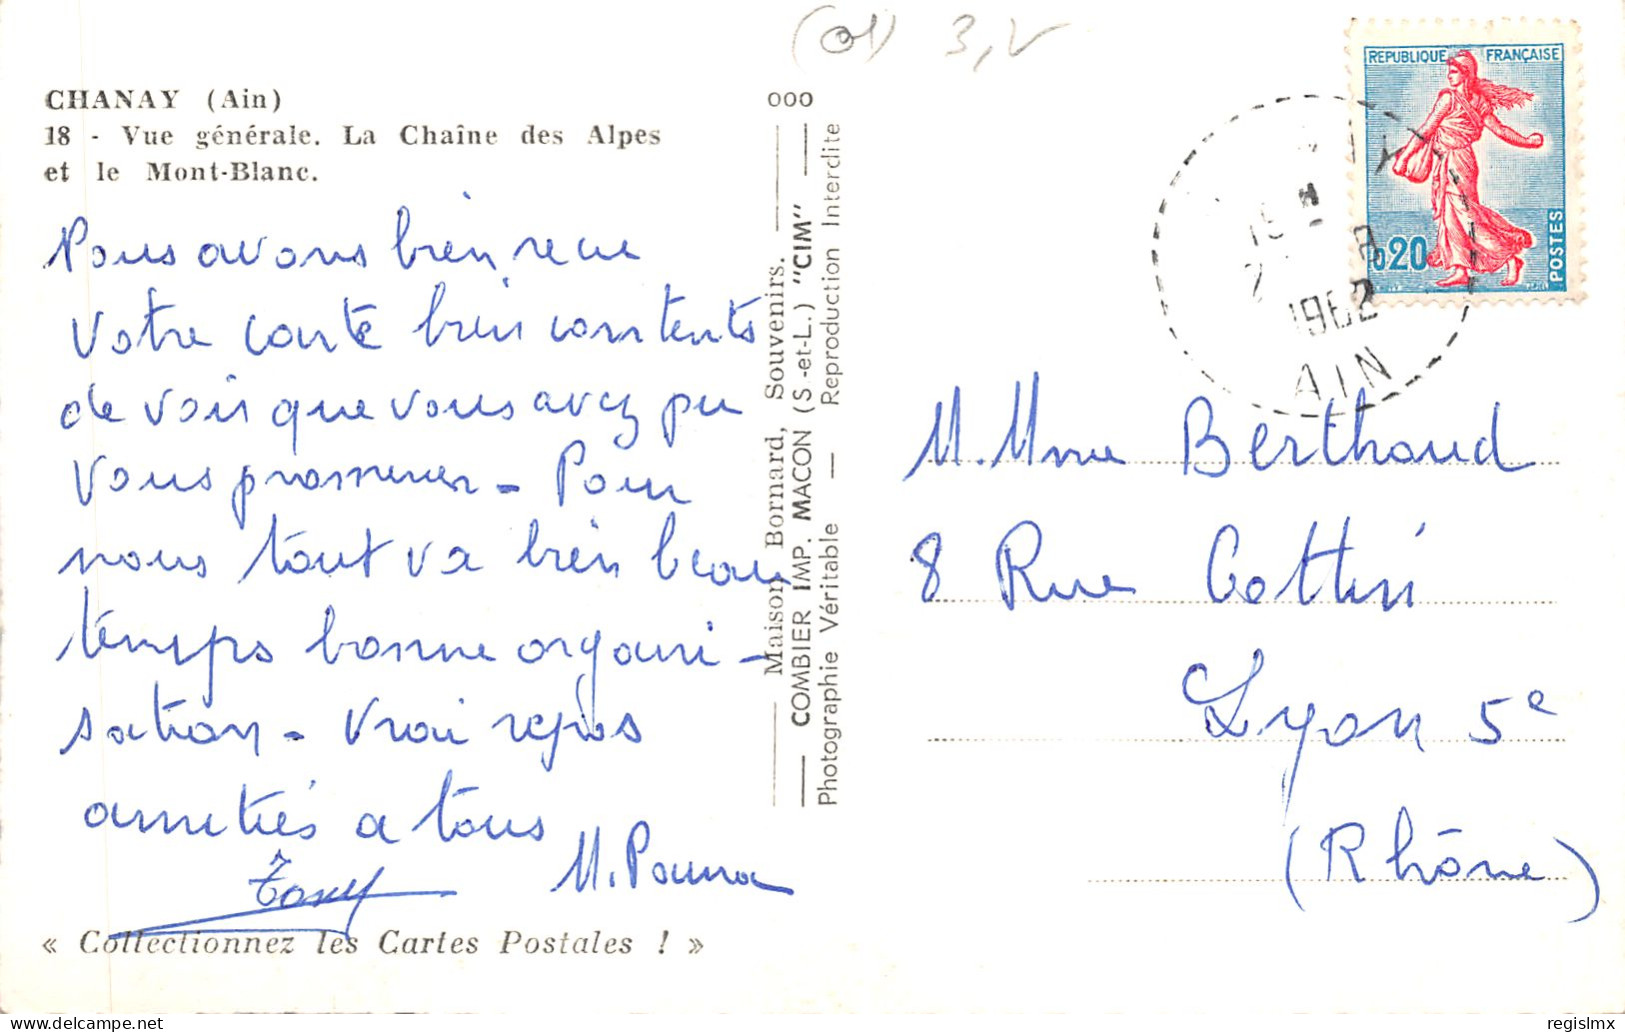 (01) 3,
CHANAY (Ain)
18 - Vue générale. La Chaîne des Alpes
et le Mont-Blanc.
Nous avons bien recue
votre carte bien contents
de voir que vous avez pu
vous promener - Pour
nous tout va bien beau
temps bonne organi-
sation - Vrai repos
amitiés a tous
« Collectionnez les Cartes Postales ! »
000
Maison Bornard, Souvenirs.
COMBIER IMP. MACON (S.-et-L.) "CIM"
Photographie Véritable — Reproduction Interdite
REPUBLIQUE FRANÇAISE
0,20
POSTES
1962
AIN
M. Mme Berthoud
8 Rue Cottin
Lyon 5e
(Rhône)
regislmx
delcampe.net